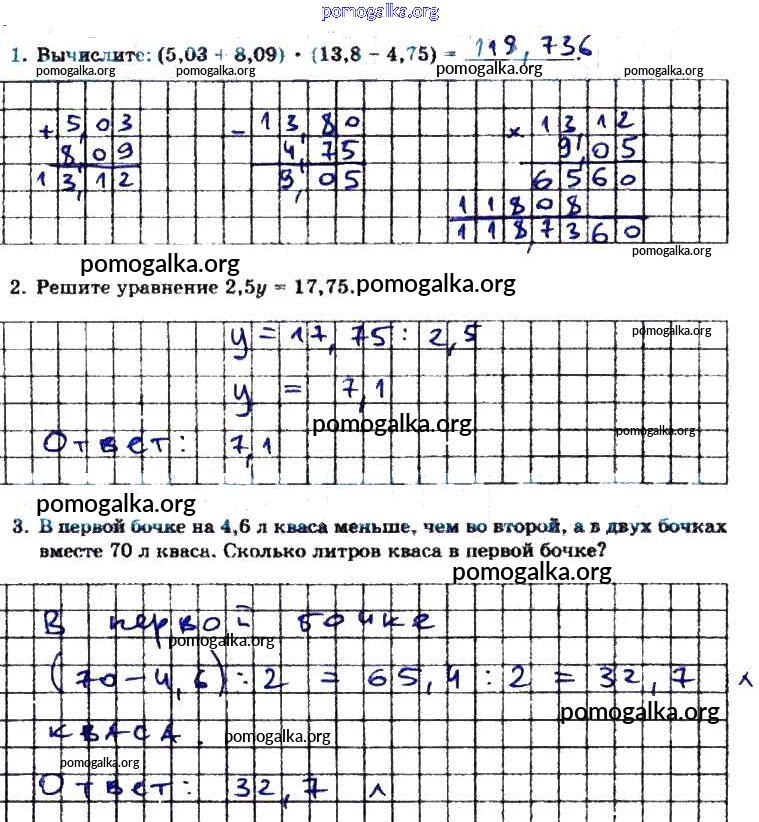 pomogalka.org
1. Вычислите: (5,03 + 8,09) · (13,8 − 4,75) = 118,736.
pomogalka.org pomogalka.org pomogalka.org pomogalka.org
+ 5,03
8,09
13,12
− 13,80
4,75
9,05
× 13,12
9,05
6560
11808
118,7360
pomogalka.org
pomogalka.org
2. Решите уравнение 2,5y = 17,75. pomogalka.org
y = 17,75 : 2,5
pomogalka.org
y = 7,1
pomogalka.org
pomogalka.org
Ответ: 7,1
pomogalka.org
3. В первой бочке на 4,6 л кваса меньше, чем во второй, а в двух бочках
вместе 70 л кваса. Сколько литров кваса в первой бочке?
pomogalka.org
В первой бочке
pomogalka.org
(70 − 4,6) : 2 = 65,4 : 2 = 32,7 л
pomogalka.org
кваса.
pomogalka.org
pomogalka.org
Ответ: 32,7 л